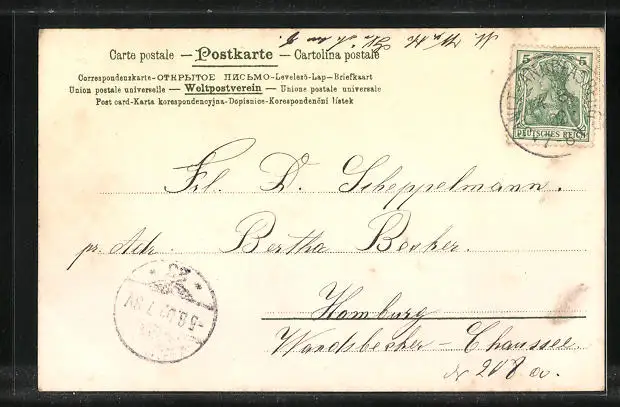 Carte postale — Postkarte — Cartolina postale
Correspondenzkarte-ОТКРЫТОЕ ПИСЬМО-Levelező-Lap-Briefkaart
Union postale universelle — Weltpostverein — Unione postale universale
Post card-Karta korespondencyjna-Dopisnice-Korespondenční lístek
5 5
DEUTSCHES REICH
Frl. D. Scheppelmann.
pr. Adr. Bertha Becker.
Hamburg
Wandsbecker-Chaussee
№ 208 a.